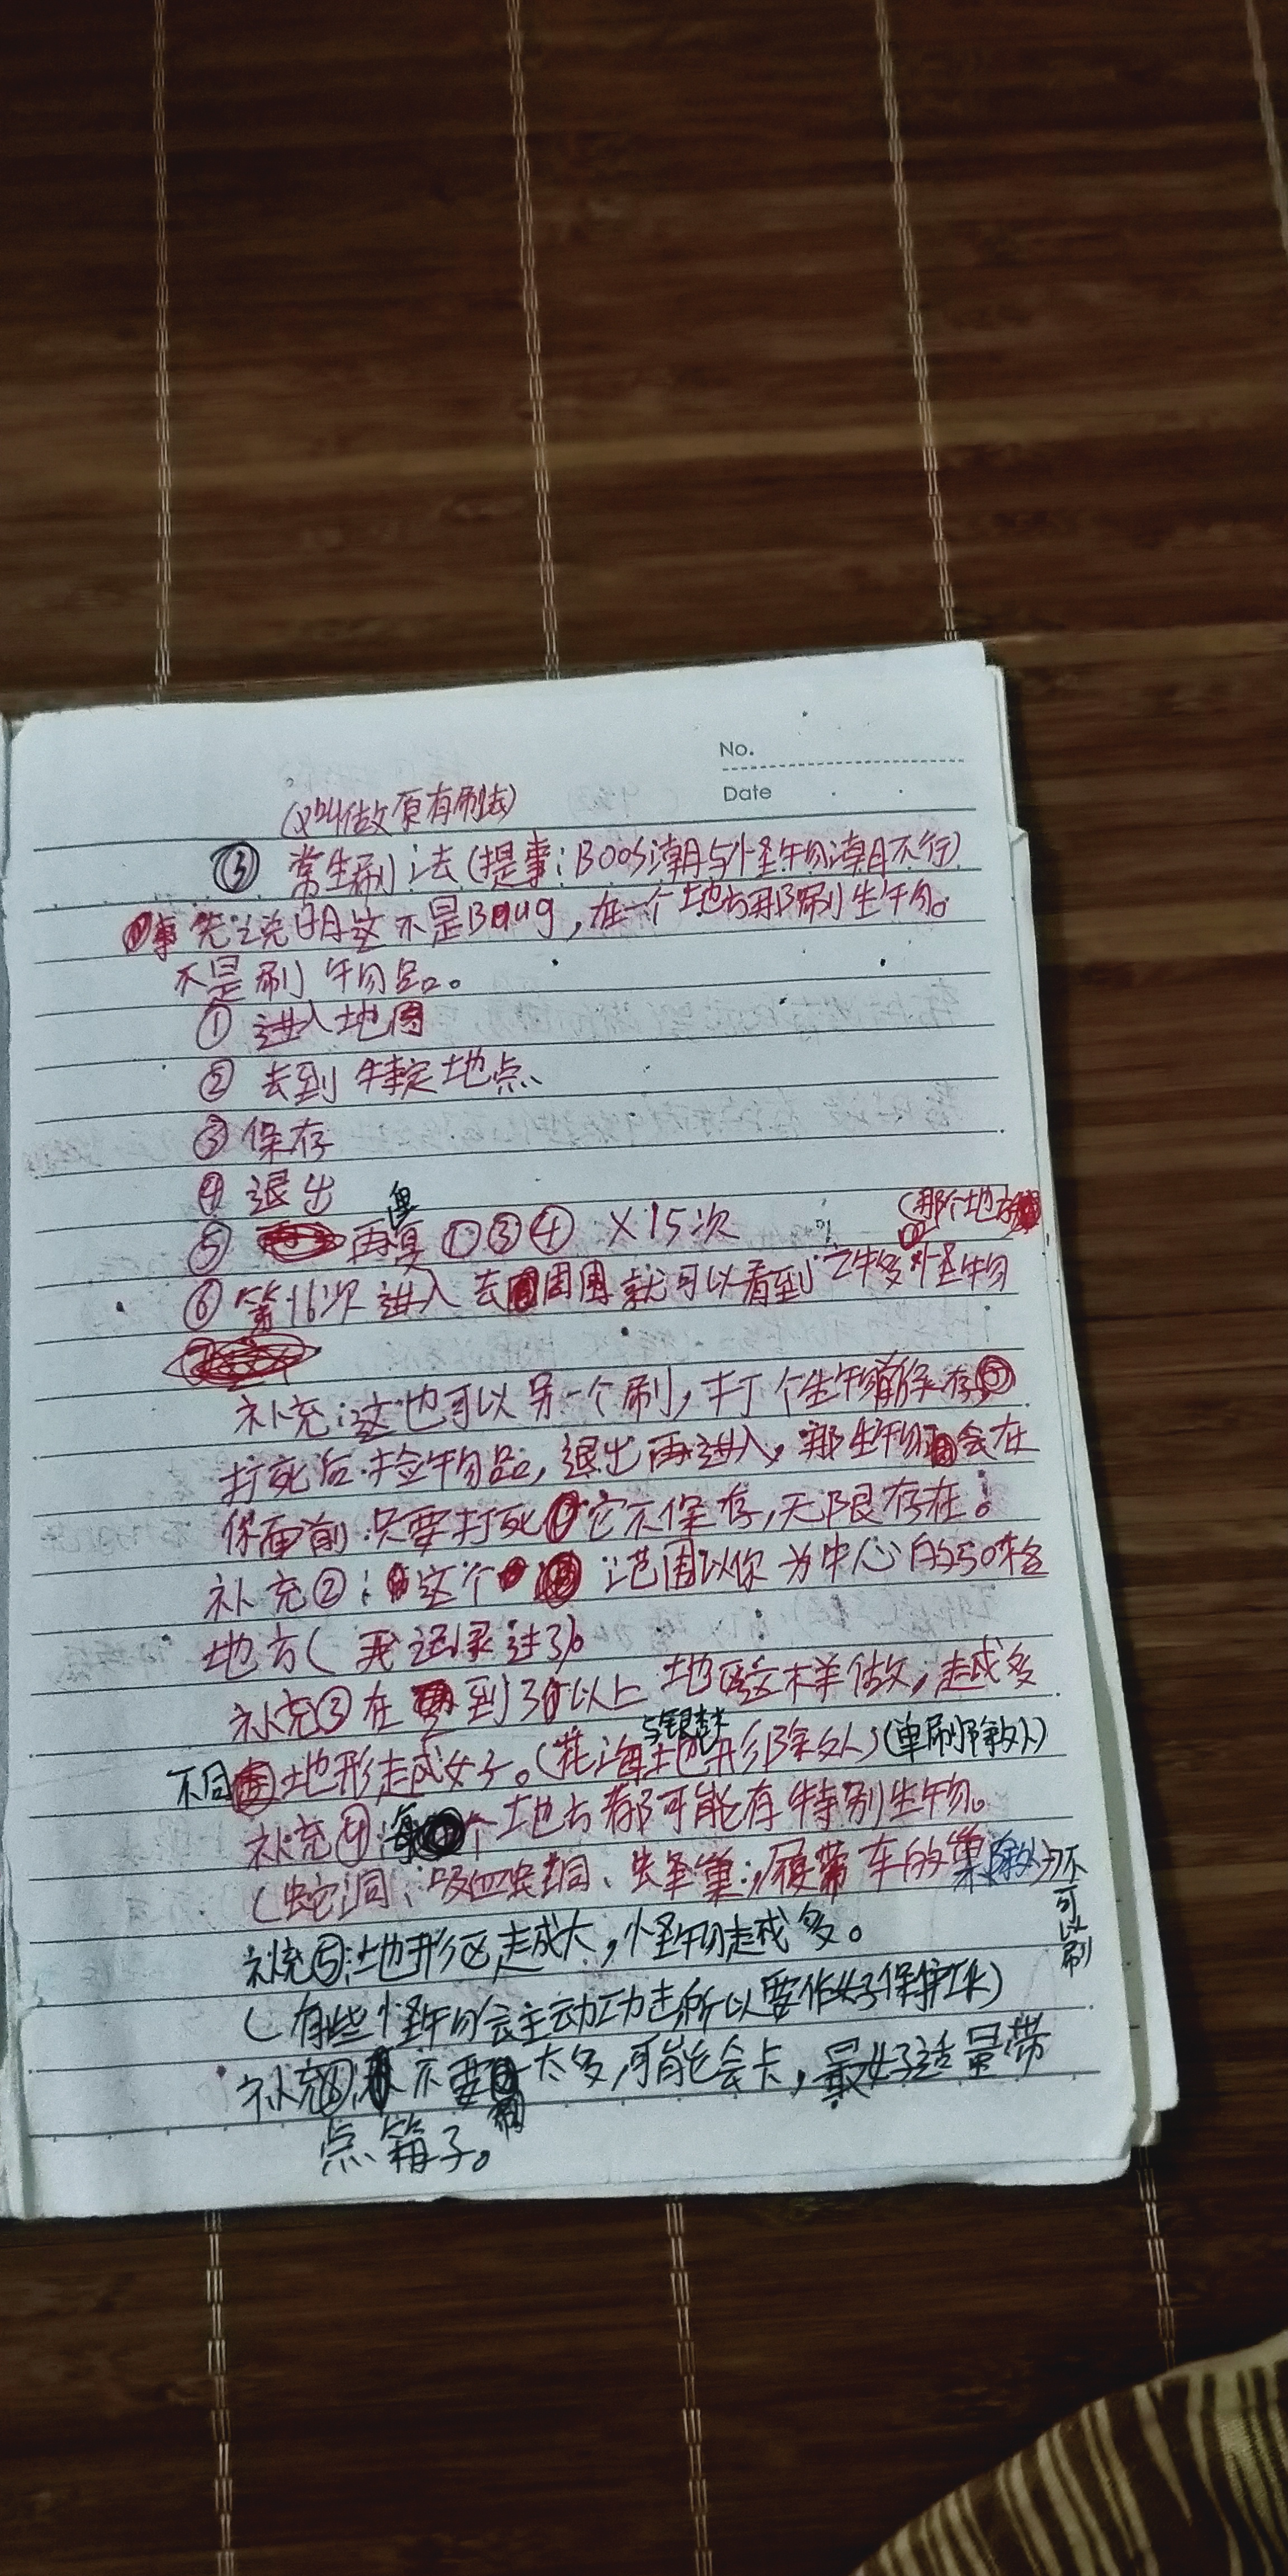 No.
Date
(又叫做原有刷法)
③ 常生刷法(提事:BOOS潮与怪物潮不行)
先说明这不是Bug,在一个地方刷生物。
不是刷物品。
① 进入地图
② 去到特定地点
③ 保存
④ 退出
⑤ 再复 ①③④ ×15次
(那个地方
⑥ 第16次进入去周围就可以看到 怪物
补充:这也可以另一个刷,打个生物前保存
打死后捡物品,退出再进入,那生物会在
你面前.只要打死它不保存,无限存在!
补充②:这个 范围以你为中心的50格
地方(我记录过36
补充③在 到30以上 地区这样做,越多
不同地形越好。(花海 地形除外)(单刷除外)
补充④:每个地方都可能存特别生物。
(蛇洞、吸血虫洞、虫巢;履带车的巢除外)不
可以刷
补充⑤:地形区越大,怪物越多。
(有些怪物会主动攻击所以要作好保护)
补充 不要 太多,可能会卡,最好适量带
点箱子。